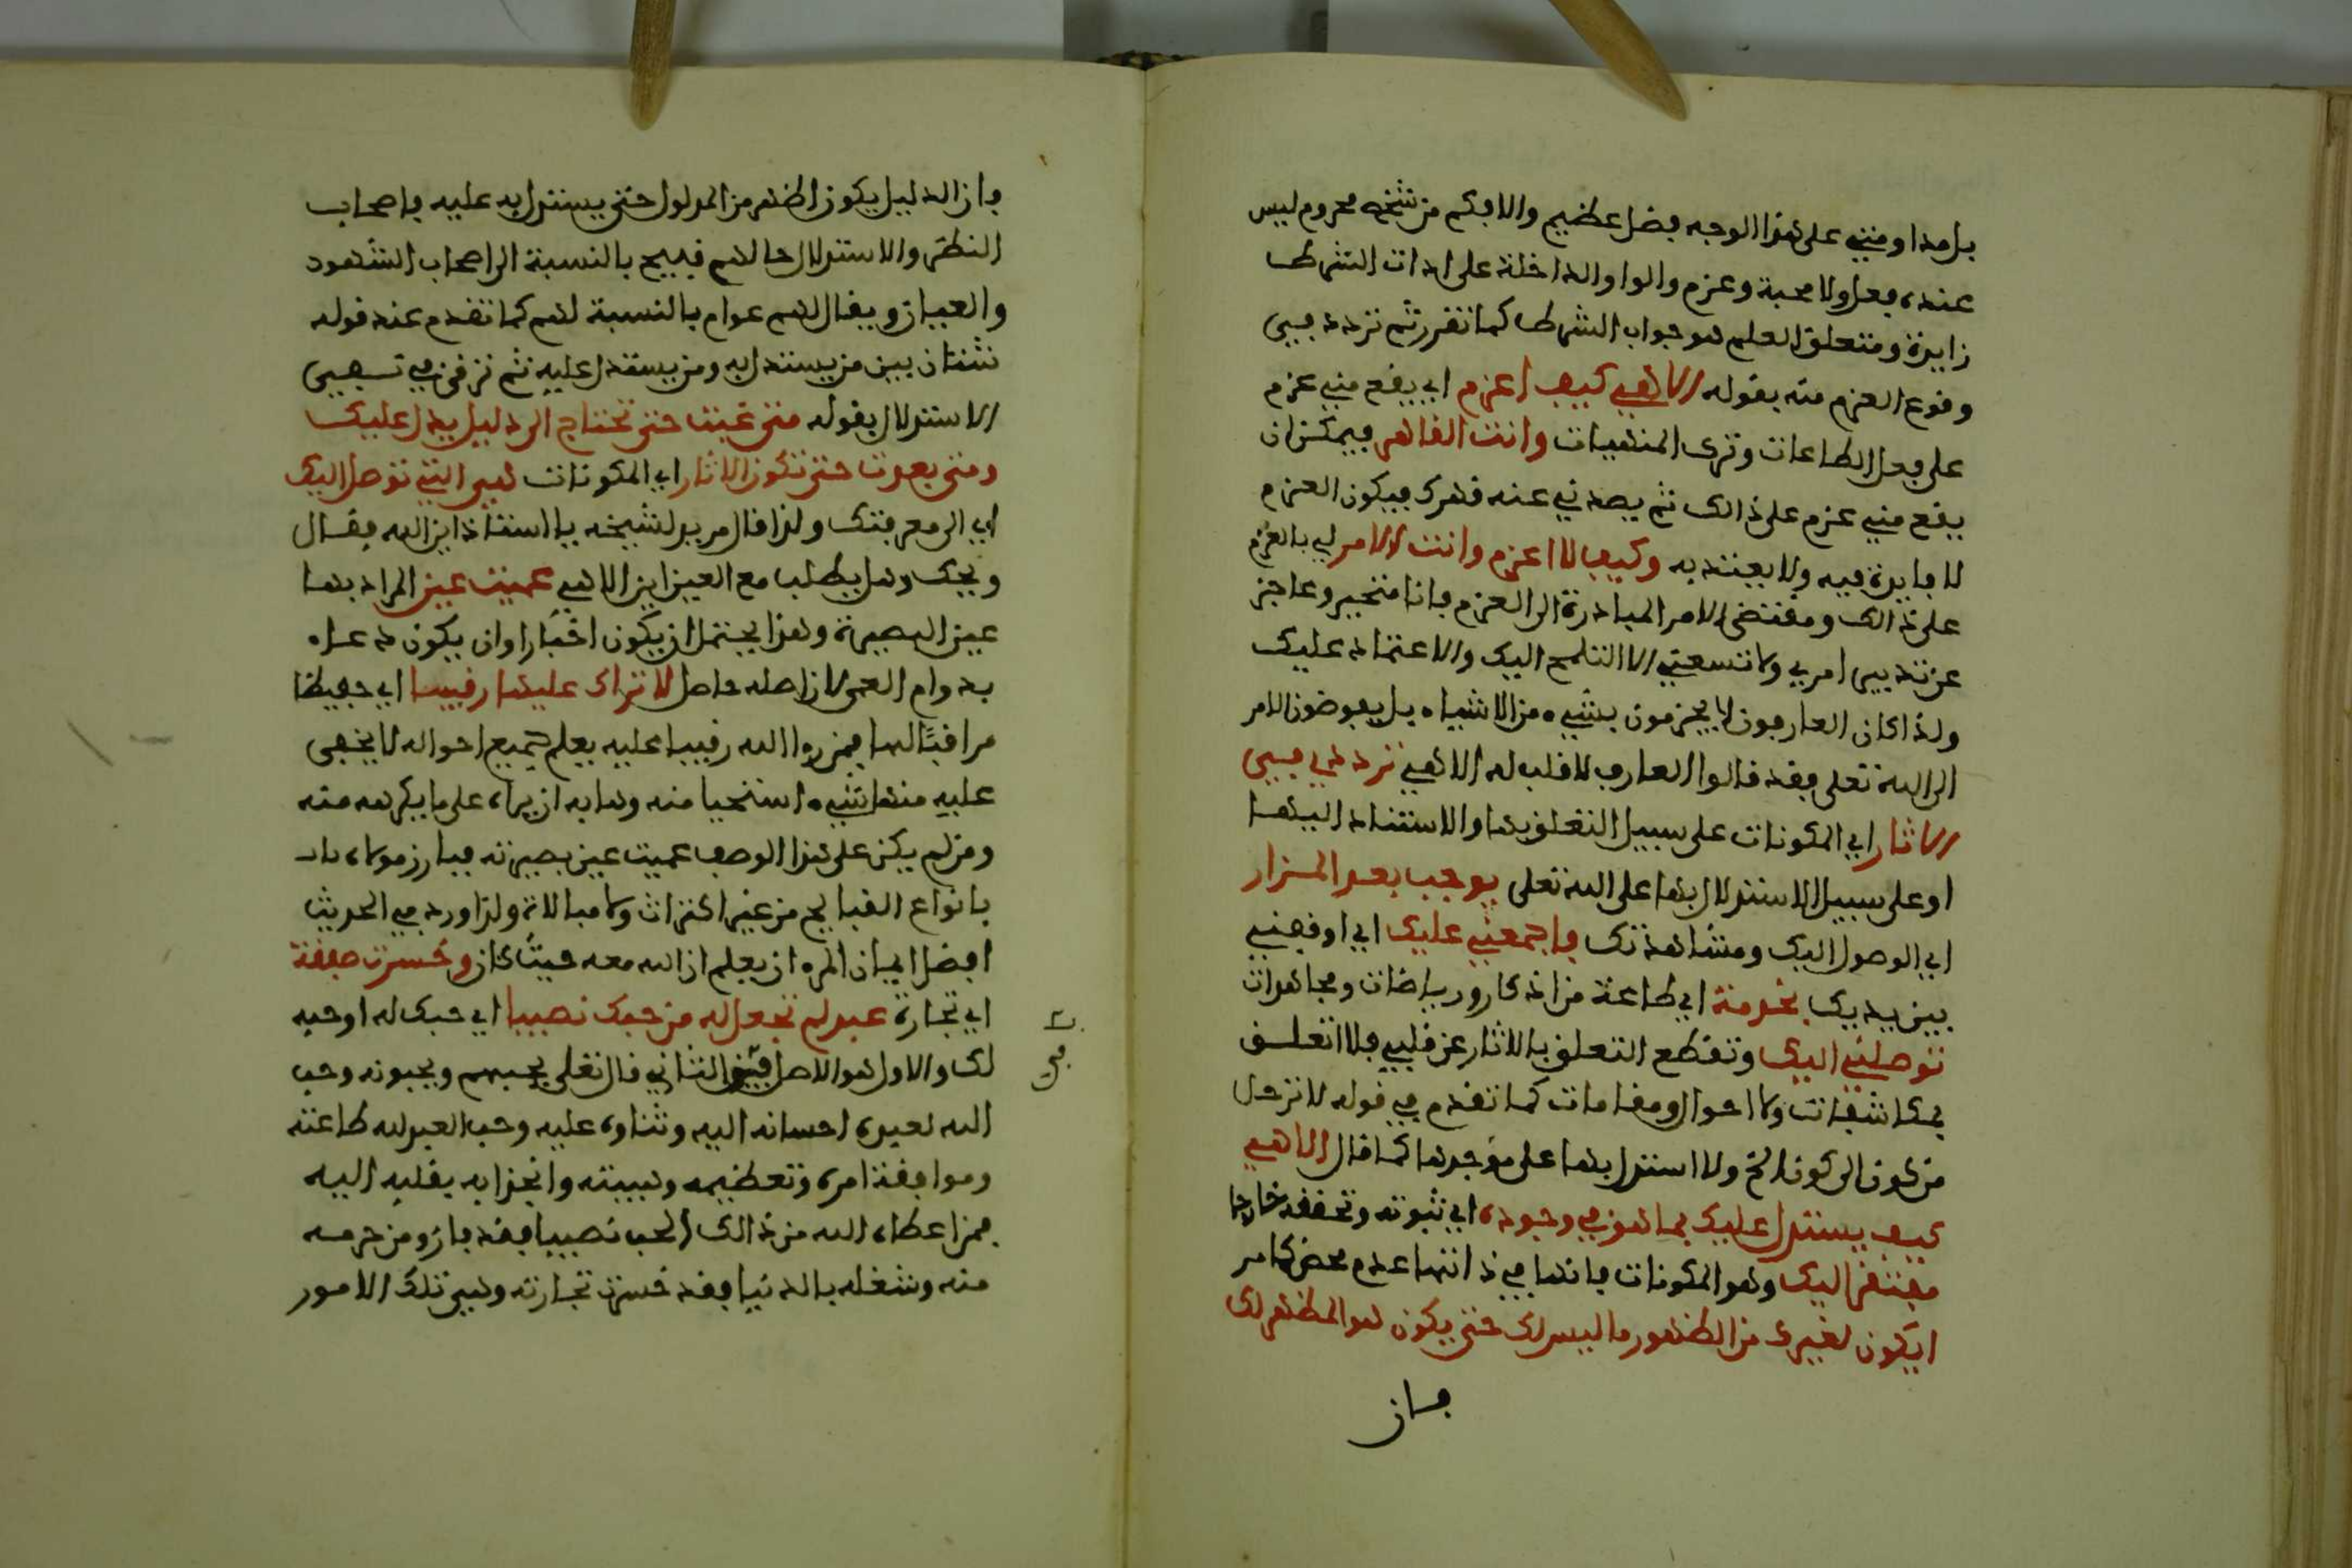 بل مداومتي على هذا الوجه فضل عظيم والا فكم من شخص محروم ليس
عنده فعل ولا محبة وعزم والواو الداخلة على ادات الشرط
زايدة ومتعلق العلم هو جواب الشرط كما تقرر ثم تردد في
وقوع العزم منه بقوله الاهي كيف اعزم اي يقع مني عزم
على فعل الطاعات وترك المنهيات وانت القاهر فيمكن ان
يقع مني عزم على ذالك ثم يصدني عنه قهرك فيكون العزم
لا فايدة فيه ولا يعتد به وكيف لا اعزم وانت الامر لي بالعزم
على ذالك ومقتضى الامر المبادرة الى العزم فانا متحير وعاجز
عن تدبير امري ولا تسعني الا اللتجا اليك والاعتماد عليك
ولذا كان العارفون لا يجزمون بشيء من الاشياء بل يفوضون الامر
الى الله تعلى فقد قالوا العارف لا قلب له الاهي ترددي في
الاثار اي المكونات على سبيل التعلق بها والاستناد اليها
او على سبيل الاستدلال بها على الله تعلى يوجب بعد المزار
اي الوصول اليك ومشاهدتك فاجمعني عليك اي اوقفني
بين يديك بخدمة اي طاعة من اذكار ورياضات ومجاهدات
توصلني اليك وتقطع التعلق بالاثار عن قلبي فلا اتعلق
بمكاشفات ولا احوال ومقامات كما تقدم في قوله لا ترحل
من كون الى كون الخ ولا استدل بها على موجدها كما قال الاهي
كيف يستدل عليك بما هو في وجوده اي ثبوته وتحققه خارجا
مفتقر اليك وهو المكونات فانها في ذاتها عدم محض كما مر
ايكون لغيرك من الظهور ما ليس لك حتى يكون هو المظهر لك
فان
فان الدليل يكون اظهر من المدلول حتى يستدل به عليه فاصحاب
النظر والاستدلال حالهم قبيح بالنسبة الى اصحاب الشهود
والعيان ويقال لهم عوام بالنسبة لهم كما تقدم عند قوله
شتان بين من يستدل به ومن يستدل عليه ثم ترقى في
الاستدلال بقوله متى غبت حتى تحتاج الى دليل يدل عليك
ومتى بعدت حتى تكون الاثار اي المكونات هي التي توصل اليك
اي الى معرفتك ولذا قال مريد لشيخه يا استاذ اين الله فقال
ويحك وهل يطلب مع العين اين الاهي عميت عين المراد بها
عين البصيرة وهذا يحتمل ان يكون اخبارا وان يكون دعاء
بدوام العمى لان اصله حاصل لا تراك عليها رقيبا اي حفيظا
مراقبا لها فمن راا الله رقيبا عليه يعلم جميع احواله لا يخفى
عليه منها شيء استحيا منه وهابه ان يراه على ما يكرهه منه
ومن لم يكن على هذا الوصف عميت عين بصيرته فبارز مولاه
بانواع القبايح من غير اكتراث ولا مبالاة ولذا ورد في الحديث
افضل ايمان المرء ان يعلم ان الله معه حيث كان وخسرت صفقة
اي تجارة عبد لم تجعل له من حبك نصيبا اي حبك له او حبه
لك والاول هو الاصل في الثاني قال تعلى يحبهم ويحبونه وحب
الله لعبده احسانه اليه وثناوه عليه وحب العبد لله طاعته
وموافقة امره وتعظيمه وهيبته وانجذابه بقلبه اليه
فمن اعطاه الله من ذالك الحب نصيبا فقد فاز ومن حرمه
منه وشغله بالدنيا فقد خسرت تجارته وهي تلك الامور